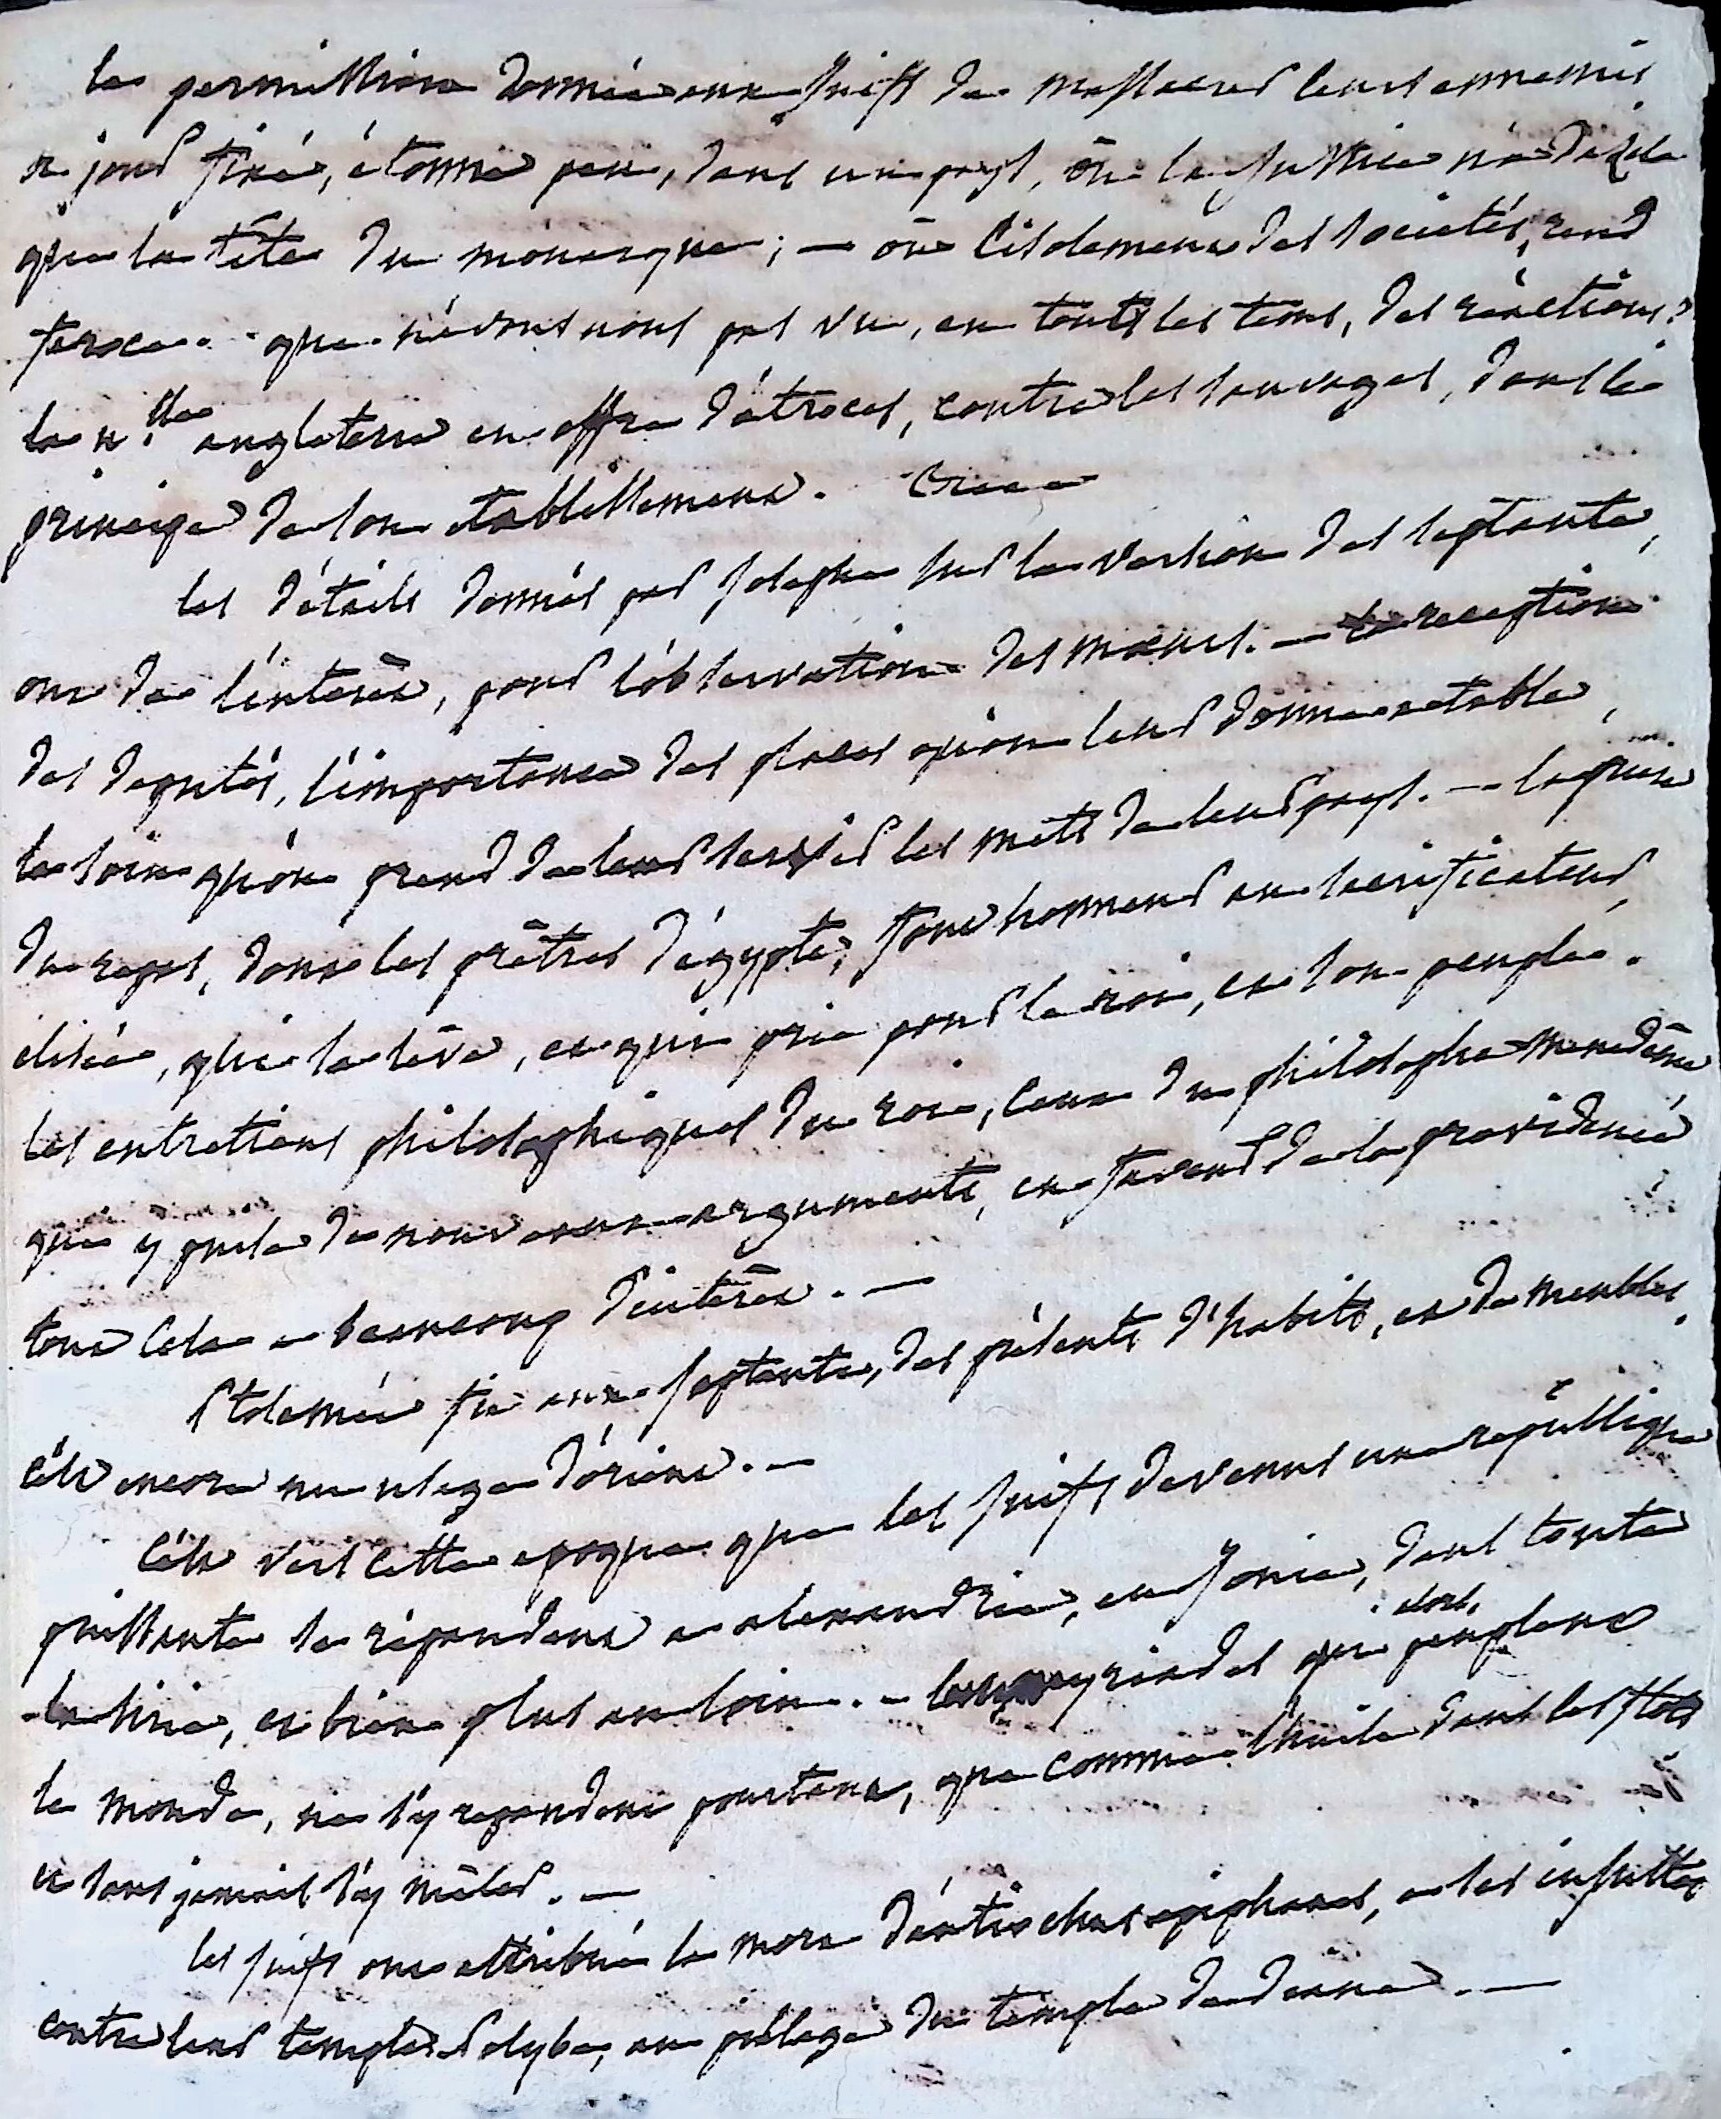 la permission donnée aux juifs de massacrer leurs ennemis
a jour fixé, étonne peu, dans un pays, où la justice n'a d'asile
que la tête du monarque ; — où l'isolement des societés, rend
feroce. que n'avons nous pas vu, en touts les tems, des réactions?
la n.lle angleterre en offre d'atroces, contre les sauvages, dans le
principe de son etablissement.
les détails donnés par josephe sur la version des septante,
ont de l'intérêt, pour l'observation des mœurs. — la reception
des deputés, l'importance des places qu'on leur donne a table,
le soin qu'on prend de leur servir les mets de leur pays. — la priere
du repas, dont les prêtres d'égypte, font honneur au sacrificateur
elisée, qui se lève, et qui prie pour le roi, et son peuple.
les entretiens philosophiques du roi, ceux du philosophe menedême
qui y puise de nouveaux arguments, en faveur de la providence
tout cela a beaucoup d'intérêt. —
Ptolemée fit aux septante, des présents d'habits, et de meubles.
c'est encore un usage d'orient. —
c'est vers cette epoque que les juifs devenus une république
puissante se répandent a alexandrie, en jonie, dans toute
la sirie, et bien plus au loin. — les myriades qui peuplent
alors,
le monde, ne s'y repandent pourtant, que comme l'huile dans les flots
et sans jamais s'y mêler. —
les juifs ont attribué la mort d'antiochus epiphanes, a ses insultes
contre leur temple. Polybe, au pillage du temple de diane. —